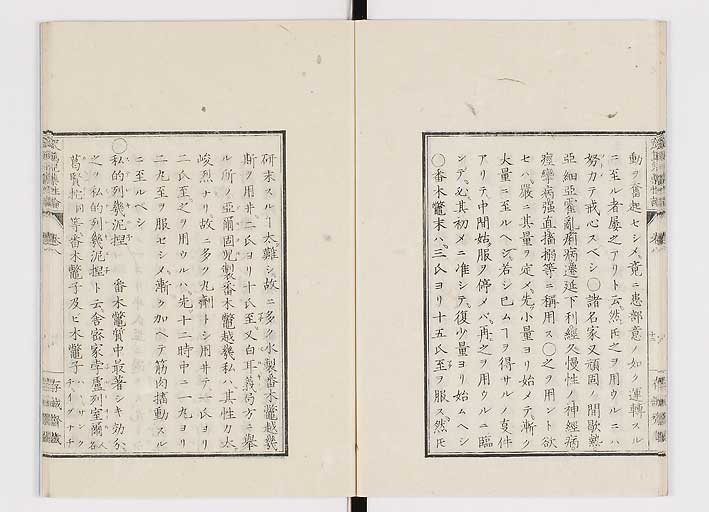 動ヲ奮起セシメ竟ニ患部意ノ如ク運轉スル
ニ至ル者屢之アリト云然𪜈之ヲ用ウルニハ
努力テ戒心スベシ〇諸名家又頑固ノ間歇熱
亞細亞霍亂痢病遷延下利經久慢性ノ神經病
痙攣病强直搐搦等ニ稱用ス〇之ヲ用ント欲
セハ嚴ニ其量ヲ定メ先小量ヨリ始メテ漸ク
大量ニ至ルヘシ若シ已ムヿヲ得サルノ事件
アリテ中間姑服ヲ停メハ再之ヲ用ウルニ臨
ンデ必其初メニ准シテ復少量ヨリ始ムヘシ
〇番木鼈末ハ三氏ヨリ十五氏至ヲ服ス然𪜈
研末スルヿ太難シ故ニ多ク水製番木鼈越幾
斯ヲ用井二氏ヨリ十氏至又白耳義局方ニ擧
ル所ノ亞爾固兒製番木鼈越幾私ハ其性力太
峻烈ナリ故ニ多ク丸劑トシ用井テ一氏ヨリ
二氏至之ヲ用ウルハ先十二時中ニ一九ヨリ
二九至ヲ服セシメ漸ク加ヘテ筋肉搐動スル
ニ至ルベシ
〇私的列幾泥捏 番木鼈質中最著シキ効分
之ヲ私的列幾泥捏ト云舎密家學盧列室爾
葛賢枇同等番木鼈子及ヒ木鼈子
存誠齋藏